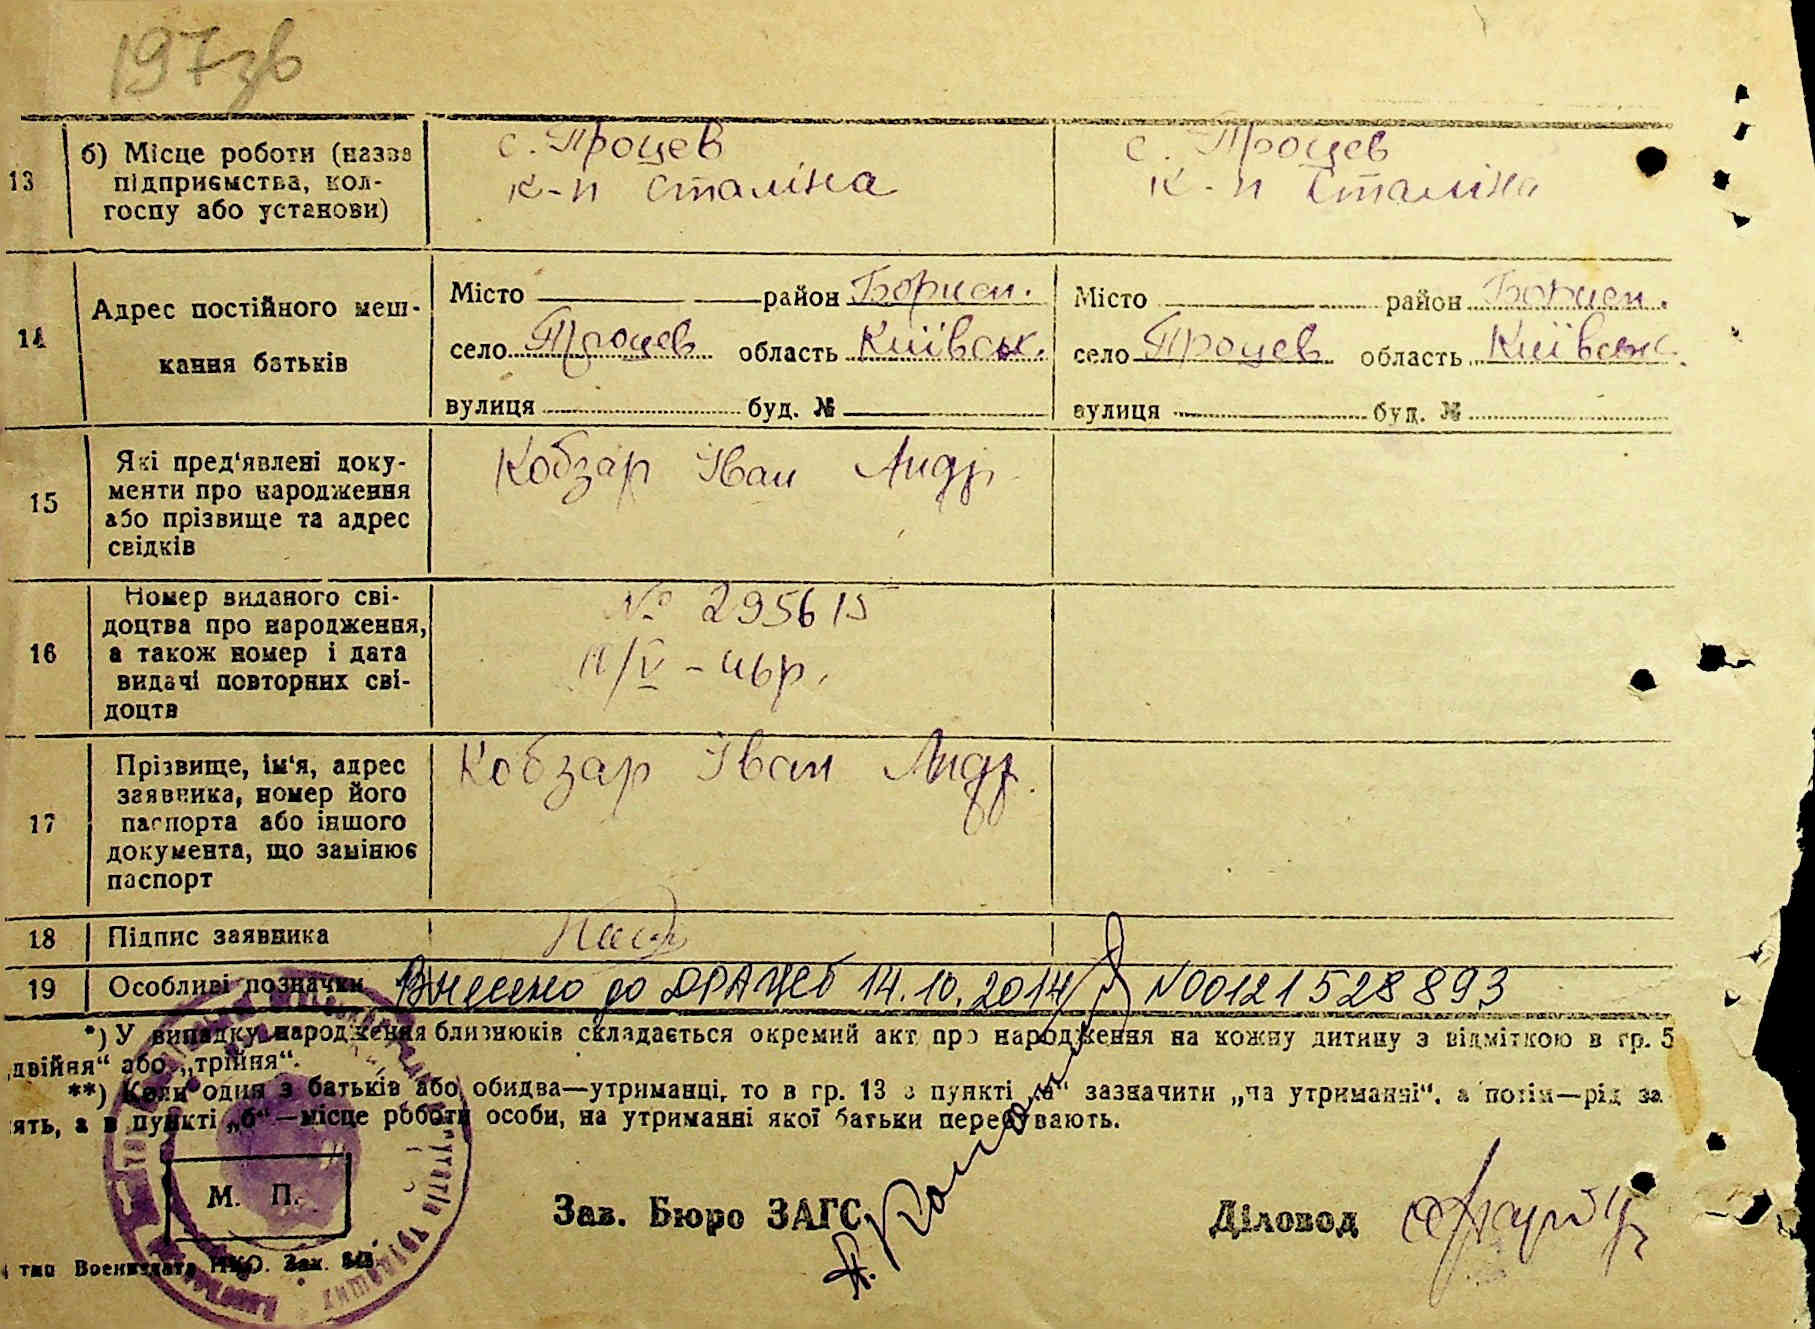 197зв
13
б) Місце роботи (назва
підприємства, кол-
госпу або установи)
с. Процев
к-п Сталіна
с. Процев
к-п Сталіна
14
Адрес постійного меш-
кання батьків
Місто район Борисп.
село Процев область Київськ.
вулиця буд. №
Місто район Борисп.
село Процев область Київськ.
вулиця буд. №
15
Які пред‘явлені доку-
менти про народження
або прізвище та адрес
свідків
Кобзар Іван Андр.
16
Номер виданого сві-
доцтва про народження,
а також номер і дата
видачі повторних сві-
доцтв
№ 295615
17
Прізвище, ім‘я, адрес
заявника, номер його
паспорта або іншого
документа, що замінює
паспорт
Кобзар Іван Андр.
18
Підпис заявника
19
Особливі позначки
Внесено до ДРАЦСГ 14.10.2014 №00121528893
*) У випадку народження близнюків складається окремий акт про народження на кожну дитину з відміткою в гр. 5
двійня“ або „трійня“.
**) Коли один з батьків або обидва—утриманці, то в гр. 13 в пункті „а“ зазначити „на утриманні“, а потім—рід за
ять, а в пункті „б“—місце роботи особи, на утриманні якої батьки перебувають.
М. П.
Зав. Бюро ЗАГС
Діловод
тип Воениздата НКО. Зак.